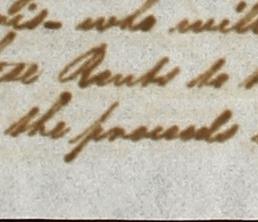 his - who will
the Rents to
the proceeds